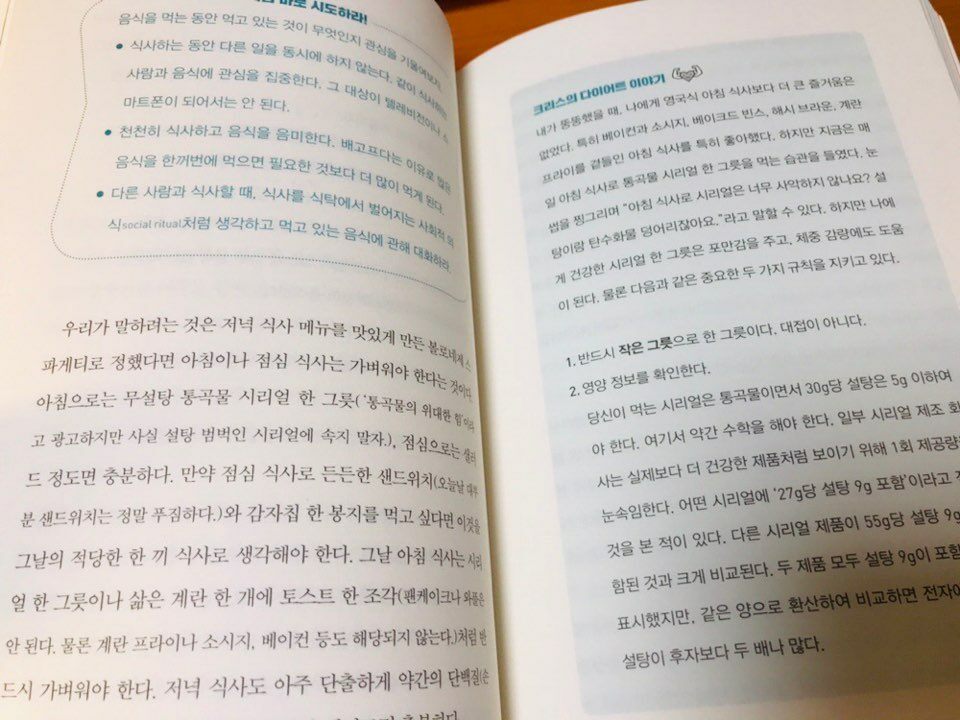 바로 시도하라!
음식을 먹는 동안 먹고 있는 것이 무엇인지 관심을 기울여보자.
• 식사하는 동안 다른 일을 동시에 하지 않는다. 같이 식사하는
사람과 음식에 관심을 집중한다. 그 대상이 텔레비전이나 스
마트폰이 되어서는 안 된다.
• 천천히 식사하고 음식을 음미한다. 배고프다는 이유로 많은
음식을 한꺼번에 먹으면 필요한 것보다 더 많이 먹게 된다.
• 다른 사람과 식사할 때, 식사를 식탁에서 벌어지는 사회적 의
식social ritual처럼 생각하고 먹고 있는 음식에 관해 대화하라.
우리가 말하려는 것은 저녁 식사 메뉴를 맛있게 만든 볼로네제 스
파게티로 정했다면 아침이나 점심 식사는 가벼워야 한다는 것이다.
아침으로는 무설탕 통곡물 시리얼 한 그릇(‘통곡물의 위대한 힘’이라
고 광고하지만 사실 설탕 범벅인 시리얼에 속지 말자.), 점심으로는 샐러
드 정도면 충분하다. 만약 점심 식사로 든든한 샌드위치(오늘날 대부
분 샌드위치는 정말 푸짐하다.)와 감자칩 한 봉지를 먹고 싶다면 이것을
그날의 적당한 한 끼 식사로 생각해야 한다. 그날 아침 식사는 시리
얼 한 그릇이나 삶은 계란 한 개에 토스트 한 조각(팬케이크나 와플은
안 된다. 물론 계란 프라이나 소시지, 베이컨 등도 해당되지 않는다.)처럼 반
드시 가벼워야 한다. 저녁 식사도 아주 단출하게 약간의 단백질(손
충분하다.
크리스의 다이어트 이야기
내가 뚱뚱했을 때, 나에게 영국식 아침 식사보다 더 큰 즐거움은
없었다. 특히 베이컨과 소시지, 베이크드 빈스, 해시 브라운, 계란
프라이를 곁들인 아침 식사를 특히 좋아했다. 하지만 지금은 매
일 아침 식사로 통곡물 시리얼 한 그릇을 먹는 습관을 들였다. 눈
썹을 찡그리며 “아침 식사로 시리얼은 너무 사악하지 않나요? 설
탕이랑 탄수화물 덩어리잖아요.”라고 말할 수 있다. 하지만 나에
게 건강한 시리얼 한 그릇은 포만감을 주고, 체중 감량에도 도움
이 된다. 물론 다음과 같은 중요한 두 가지 규칙을 지키고 있다.
1. 반드시 작은 그릇으로 한 그릇이다. 대접이 아니다.
2. 영양 정보를 확인한다.
당신이 먹는 시리얼은 통곡물이면서 30g당 설탕은 5g 이하여
야 한다. 여기서 약간 수학을 해야 한다. 일부 시리얼 제조 회
사는 실제보다 더 건강한 제품처럼 보이기 위해 1회 제공량
눈속임한다. 어떤 시리얼에 ‘27g당 설탕 9g 포함’이라고
것을 본 적이 있다. 다른 시리얼 제품이 55g당 설탕 9g
함된 것과 크게 비교된다. 두 제품 모두 설탕 9g이 포함
표시했지만, 같은 양으로 환산하여 비교하면 전자
설탕이 후자보다 두 배나 많다.